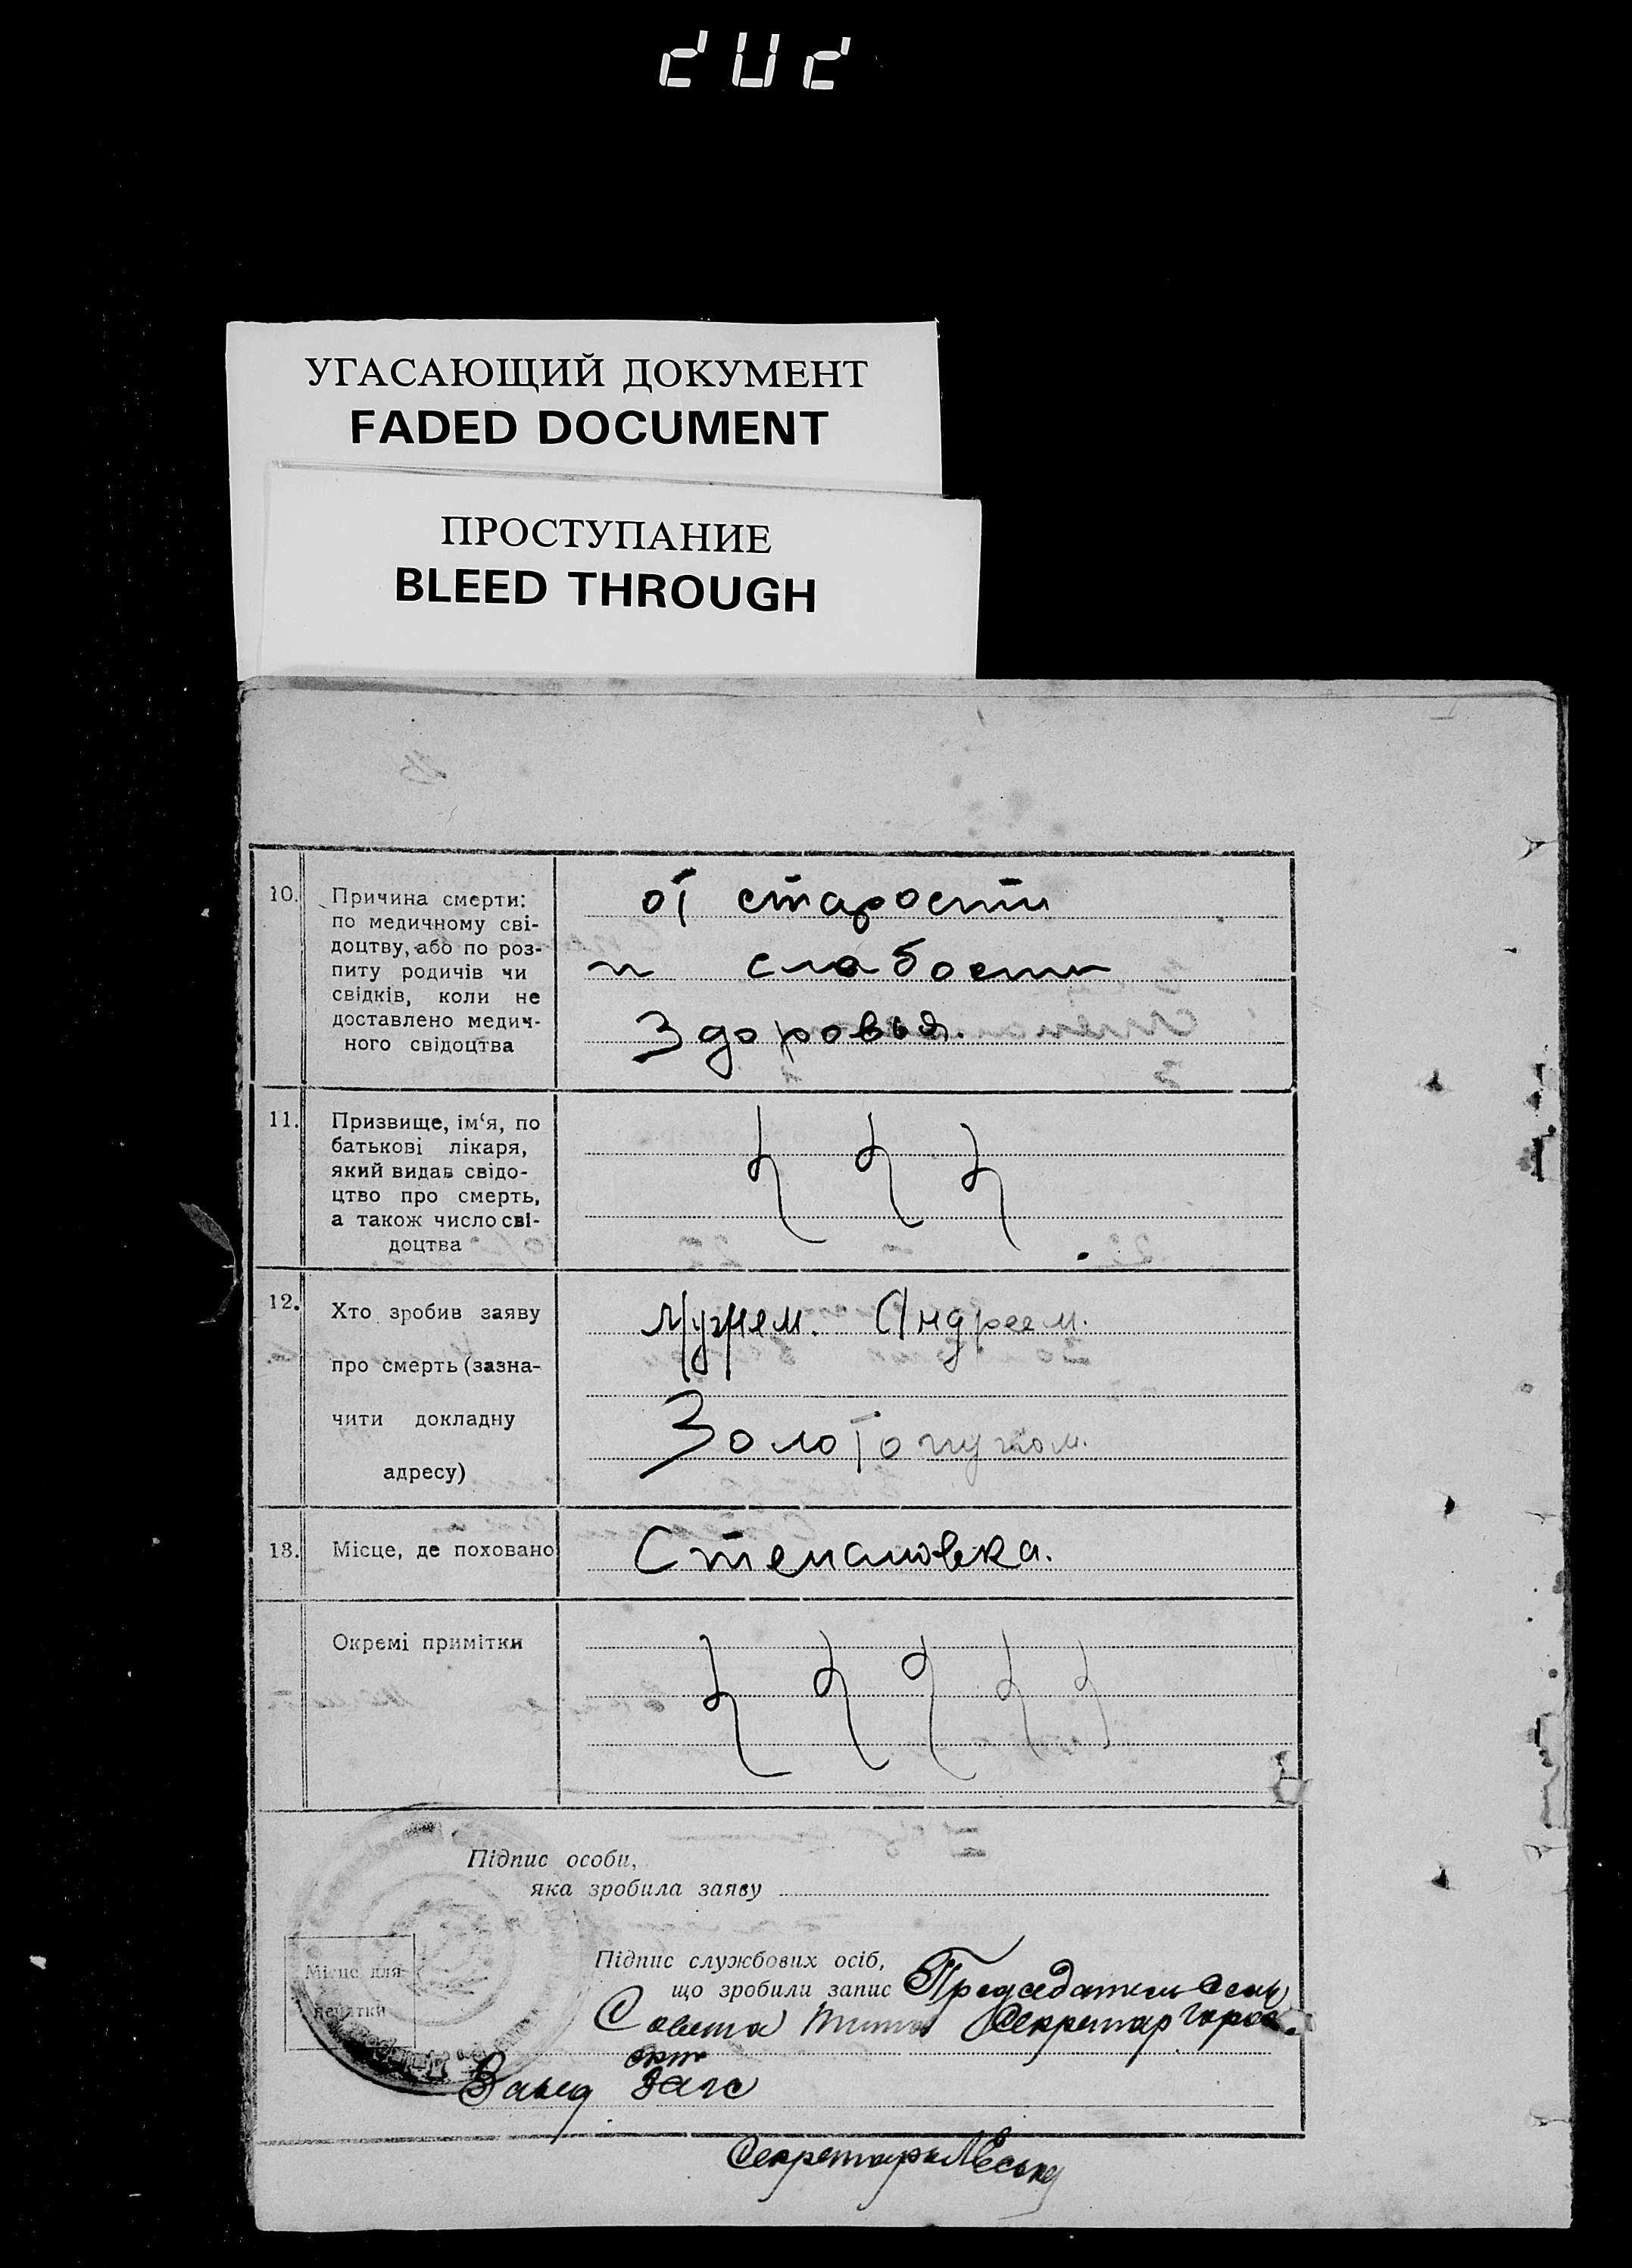 202
УГАСАЮЩИЙ ДОКУМЕНТ
FADED DOCUMENT
ПРОСТУПАНИЕ
BLEED THROUGH
10. Причина смерти:
по медичному сві-
доцтву, або по роз-
питу родичів чи
свідків, коли не
доставлено медич-
ного свідоцтва
от старости
и слабости
Здоровья.
11. Призвище, ім‘я, по
батькові лікаря,
який видав свідо-
цтво про смерть,
а також число сві-
доцтва
12. Хто зробив заяву
про смерть (зазна-
чити докладну
адресу)
Мужем. Андреем.
Золото
13. Місце, де поховано
Степановка.
Окремі примітки
Підпис особи,
яка зробила заяву
Місце для
печатки
Підпис службових осіб,
що зробили запис Председатель Сель
Совета Секретар
Завед Загс
Секретарь